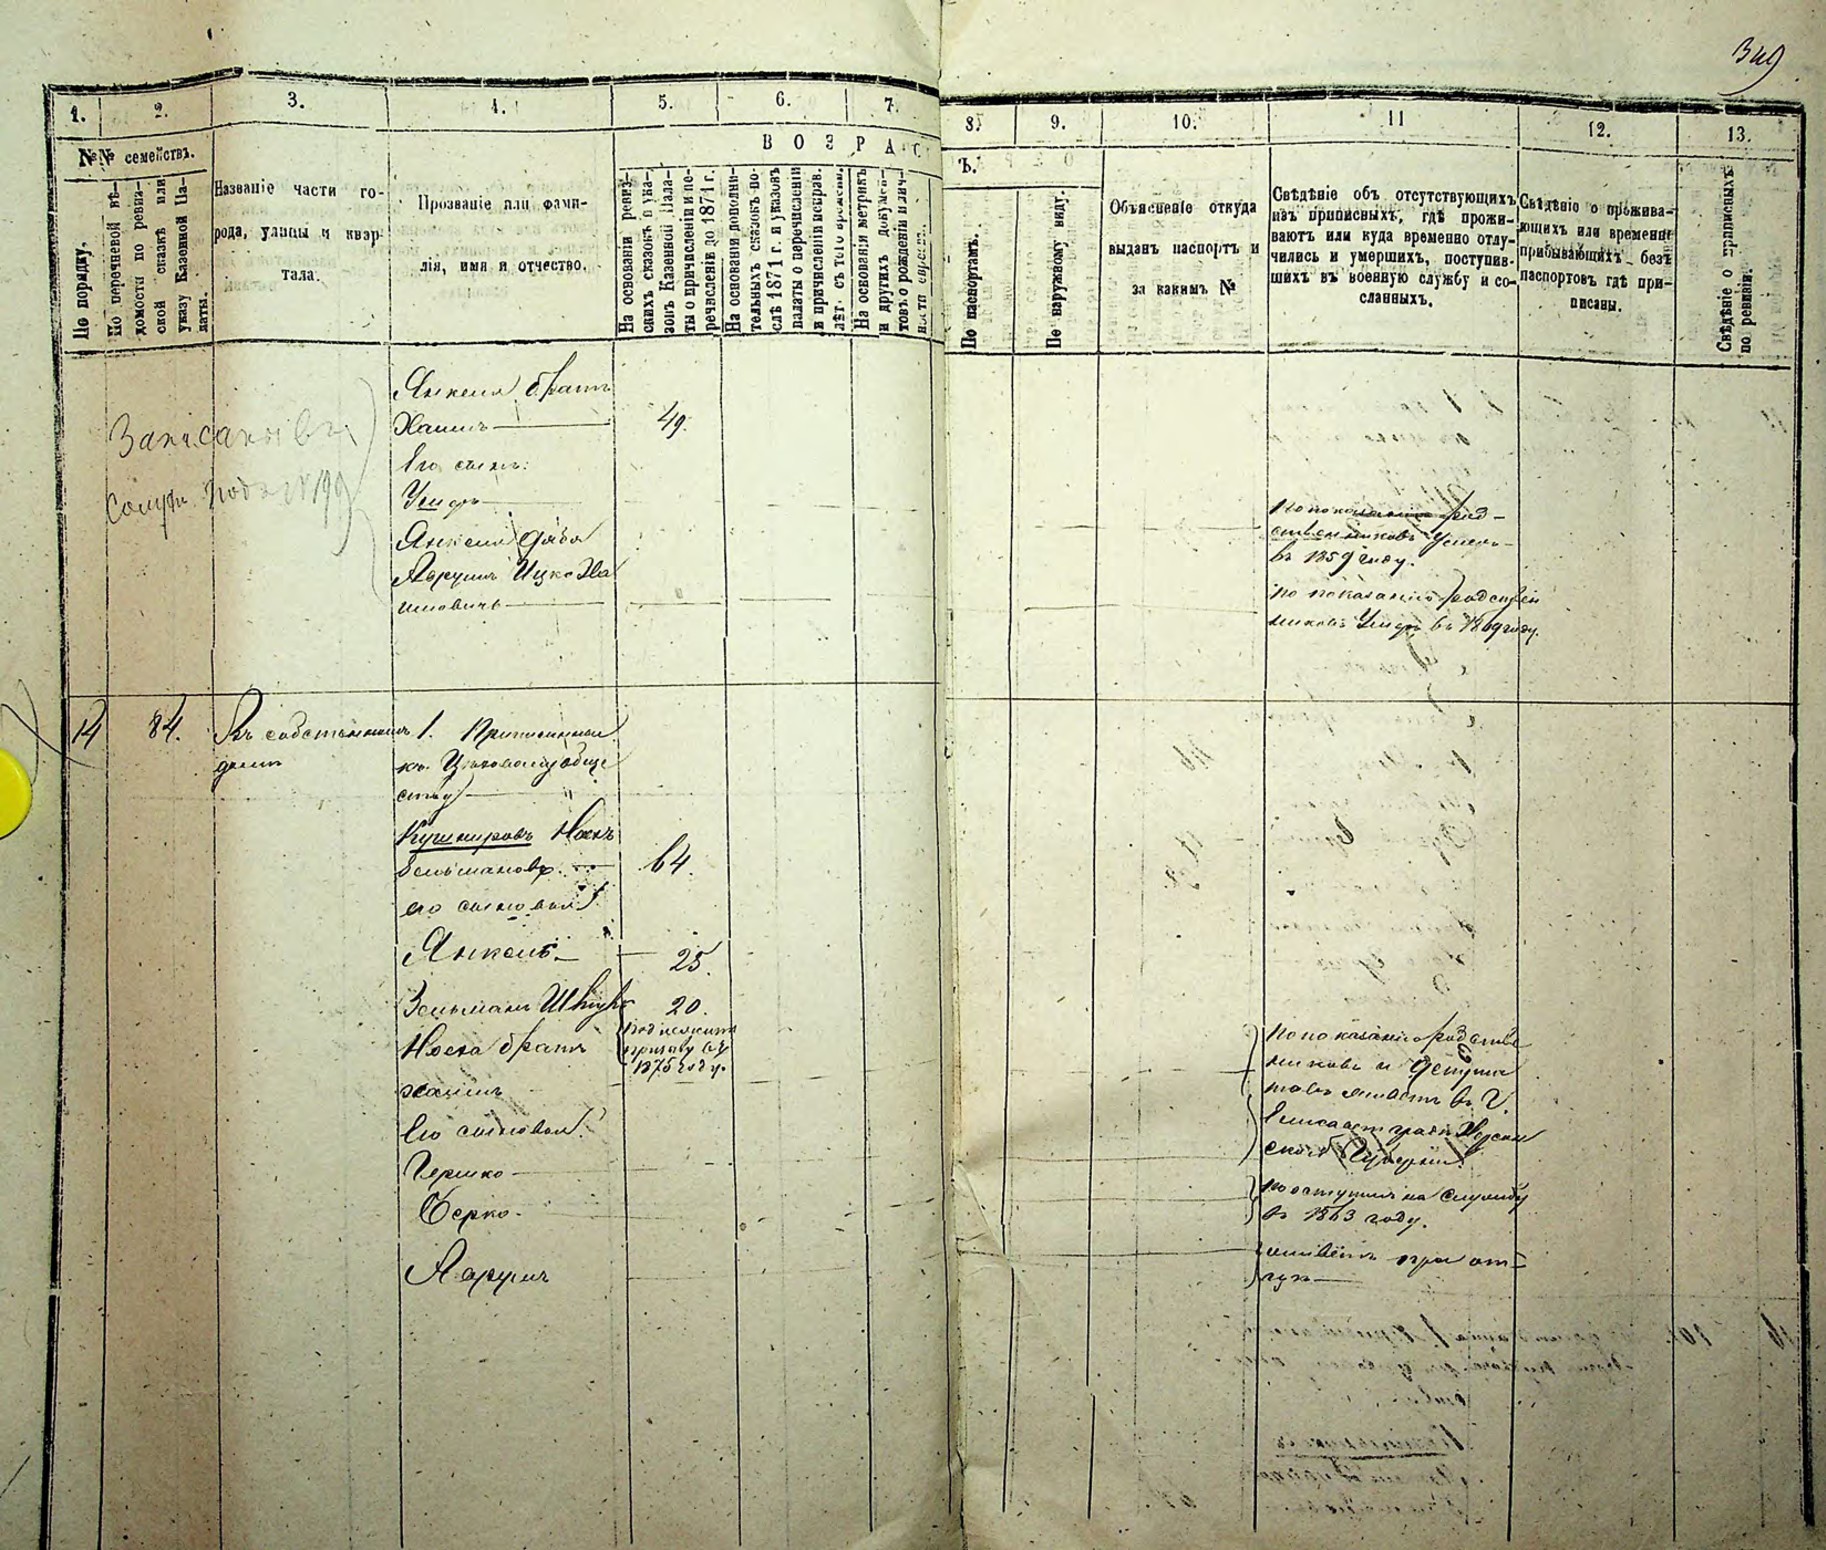 349
1.
2.
3.
4.
5.
6.
7.
8.
9.
10.
11
12.
13.
№№ семействъ.
ВОЗРАС
Ъ.
По порядку.
По перечневой вѣ-
домости по ревиз-
ской сказкѣ или
указу Казенной Па-
латы.
Названіе части го-
рода, улицы и квар
тала.
Прозваніе или фами-
лія, имя и отчество.
На основаніи ревиз-
скихъ сказокъ и ука-
зовъ Казенной Пала-
ты о причисленіи и пе-
речисленіе до 1871 г.
На основаніи дополни-
тельныхъ сказокъ по-
слѣ 1871 г. и указовъ
палаты о перечисленіи
и причисленіи исправ.
лѣт. съ того времени.
На основаніи метрикъ
и другихъ докумен-
товъ о рожденіи и лич-
ности евреевъ.
По паспортамъ.
По наружному виду.
Объясненіе откуда
выданъ паспортъ и
за какимъ №
Свѣдѣніе объ отсутствующихъ
изъ приписныхъ, гдѣ прожи-
ваютъ или куда временно отлу-
чились и умершихъ, поступив-
шихъ въ военную службу и со-
сланныхъ.
Свѣдѣніе о прожива-
ющихъ или временно
прибывающихъ безъ
паспортовъ гдѣ при-
писаны.
Свѣдѣніе о приписныхъ
по ревизіи.
Янкеля братъ
Хаимъ 49.
Его сынъ:
Умеръ
Янкеля дядя
Аврумъ Ицко Ха
имовичъ
Записаны въ
подъ № 199
По показанію род-
ственниковъ умеръ
въ 1859 году.
по показанію родствен
никовъ умеръ въ 1869 году.
14 84. Въ собственномъ
домѣ
1. Приписанные
къ обще
ству
Кушнировъ Носъ
Зельмановъ 64.
его сыновья:
Янкель 25.
Зельманъ 20.
Подлежитъ
призыву въ
1875 году.
Носа братъ
Хаимъ
Его сыновья:
Гершко
Берко
Аврумъ
По показанію родствен
никовъ и депута
товъ живетъ въ г.
Елисаветградѣ Херсон
ской Губерніи.
поступилъ на службу
въ 1863 году.
живетъ при от-
цѣ